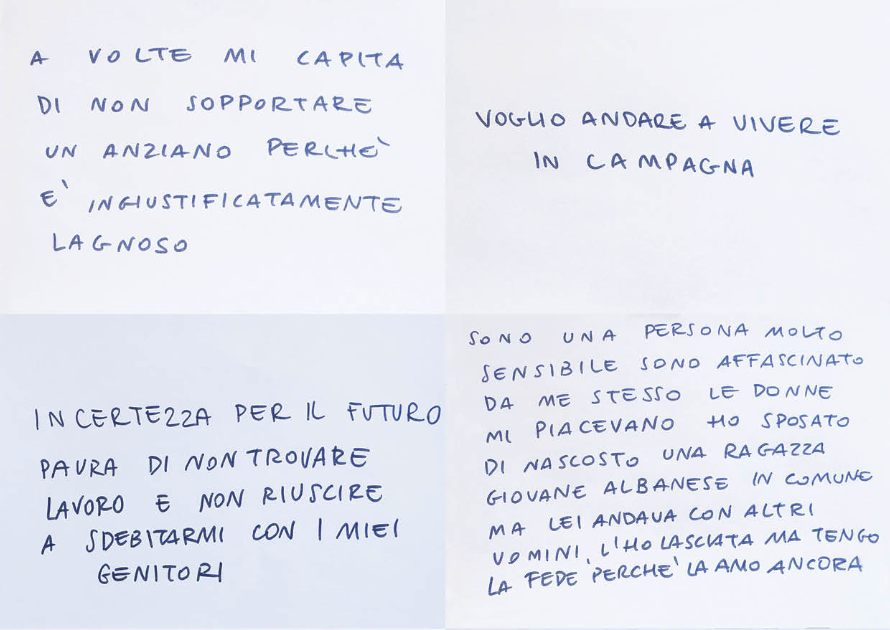 A VOLTE MI CAPITA
DI NON SOPPORTARE
UN ANZIANO PERCHE'
E' INGIUSTIFICATAMENTE
LAGNOSO
VOGLIO ANDARE A VIVERE
IN CAMPAGNA
INCERTEZZA PER IL FUTURO
PAURA DI NON TROVARE
LAVORO E NON RIUSCIRE
A SDEBITARMI CON I MIEI
GENITORI
SONO UNA PERSONA MOLTO
SENSIBILE SONO AFFASCINATO
DA ME STESSO LE DONNE
MI PIACEVANO HO SPOSATO
DI NASCOSTO UNA RAGAZZA
GIOVANE ALBANESE IN COMUNE
MA LEI ANDAVA CON ALTRI
UOMINI, L'HO LASCIATA MA TENGO
LA FEDE PERCHE' LA AMO ANCORA